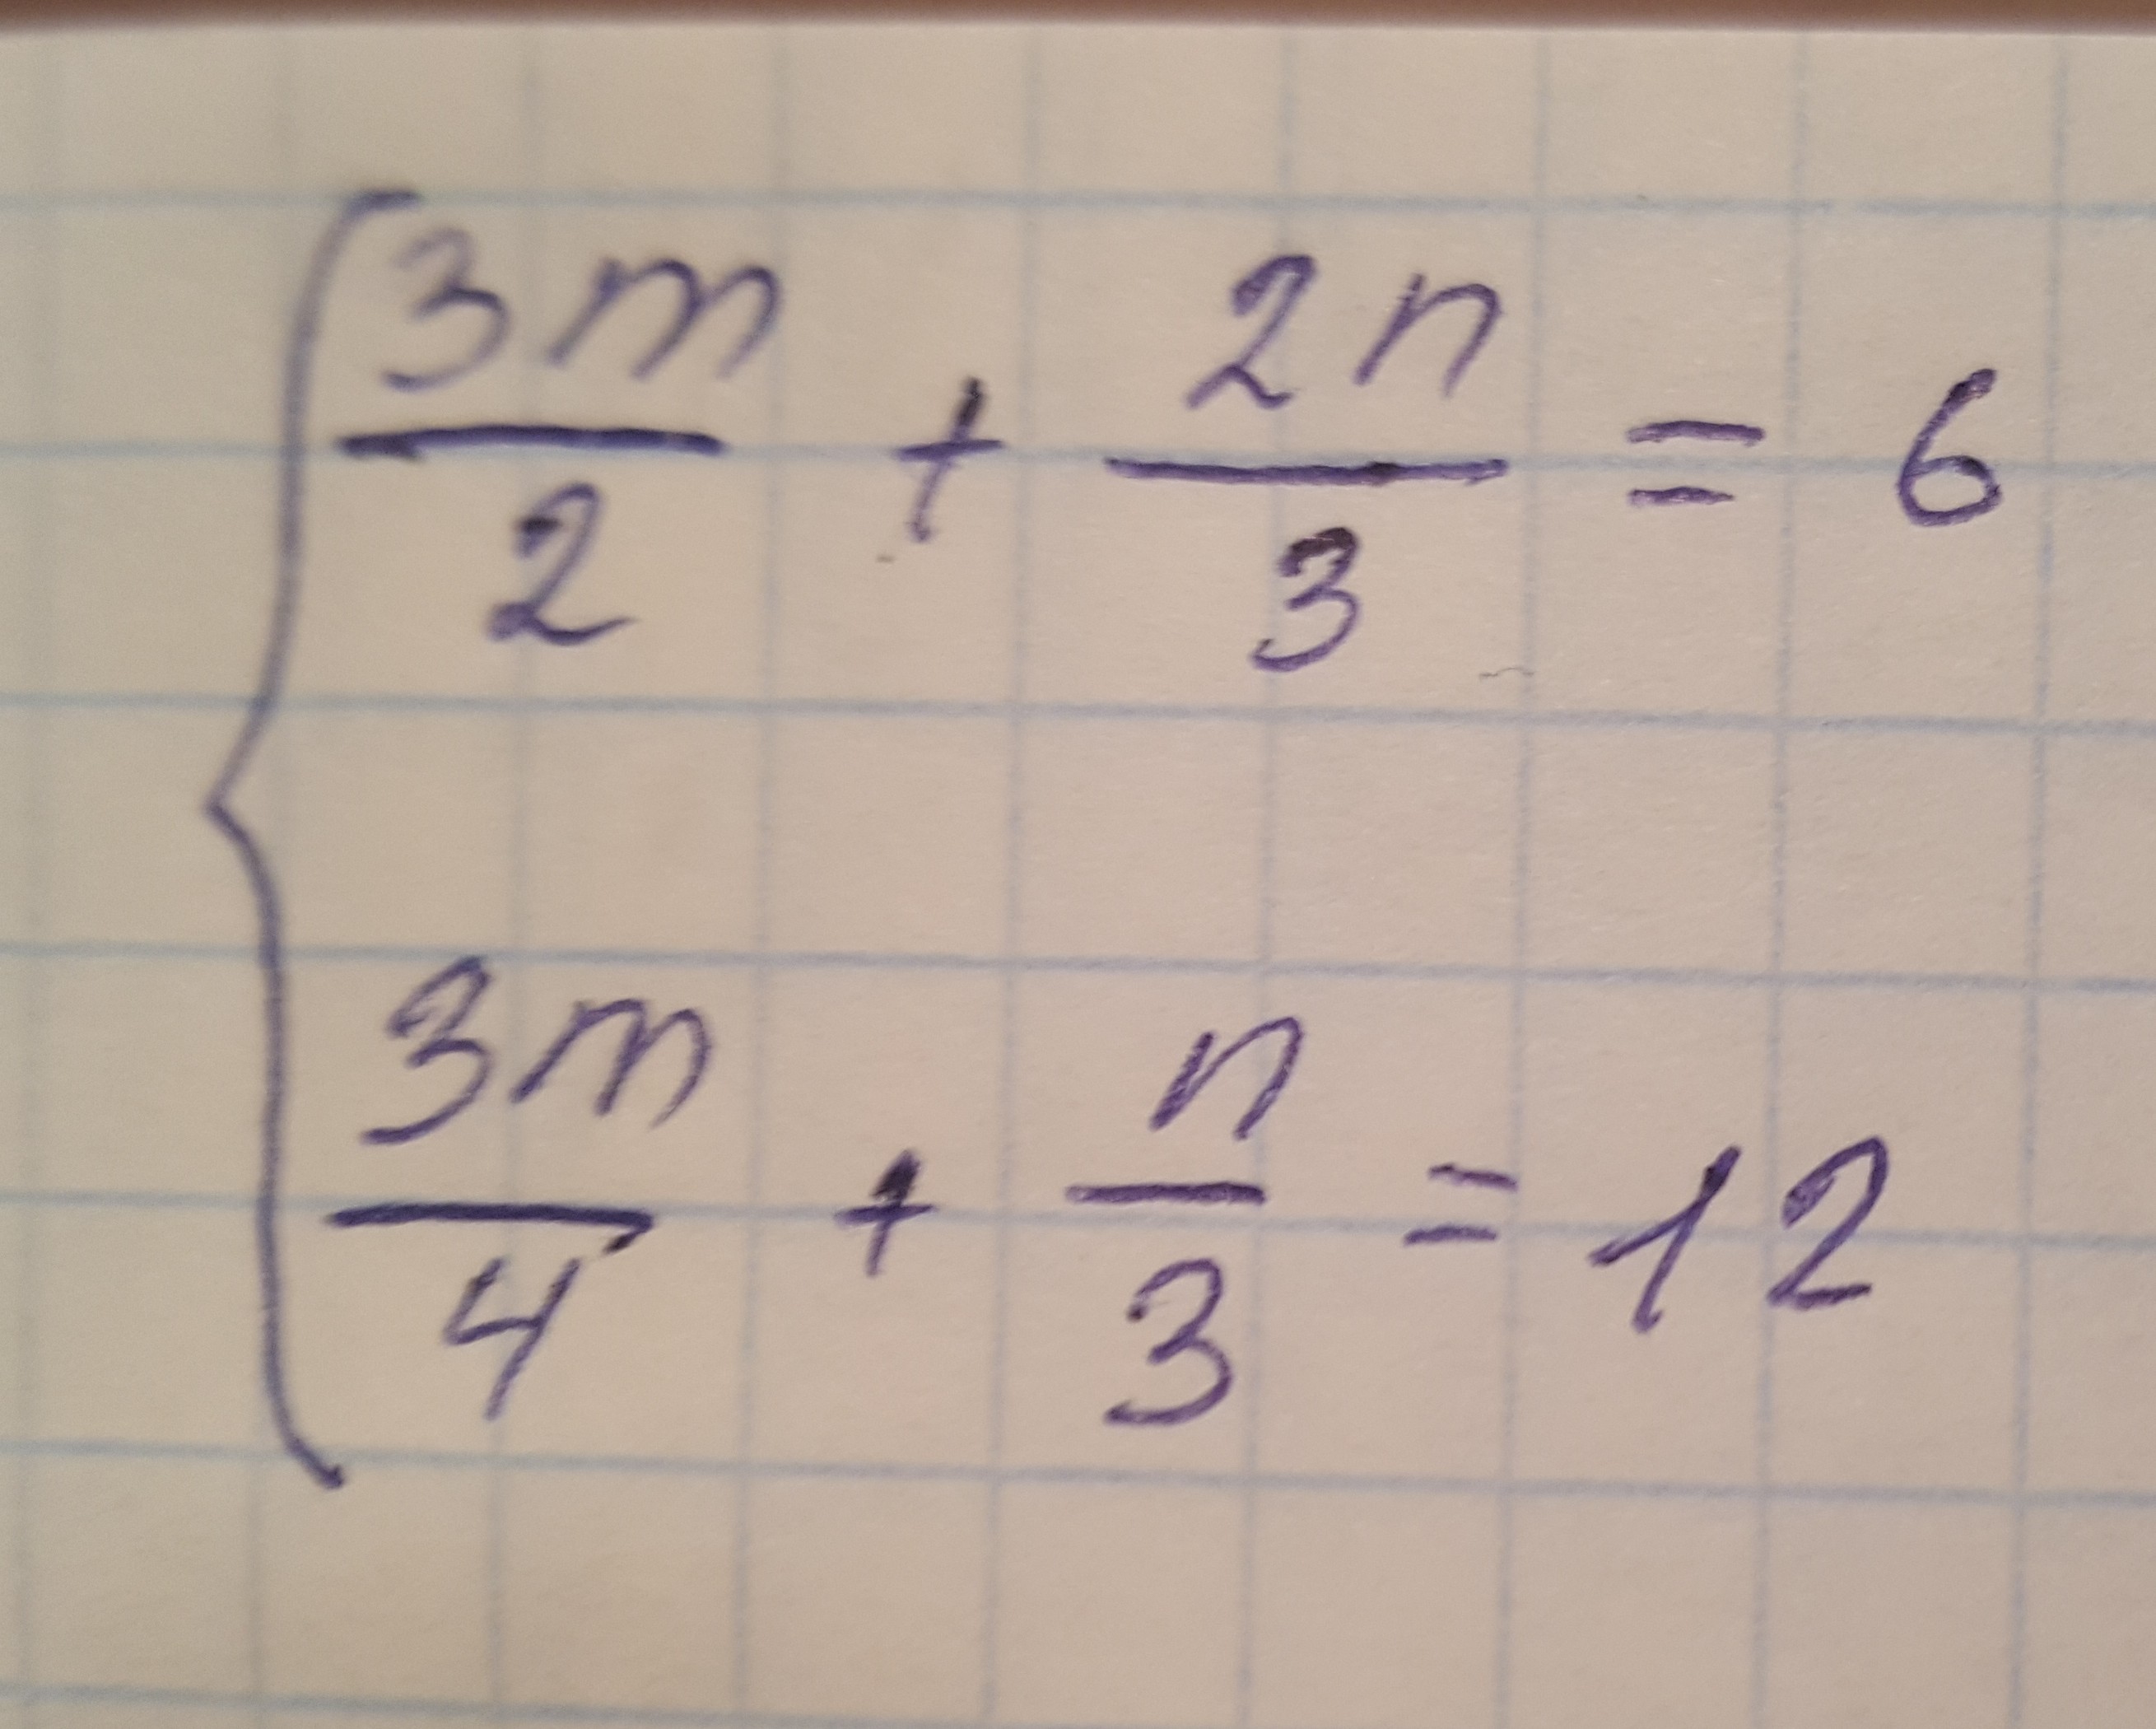 3m/2 + 2n/3 = 6
3m/4 + n/3 = 12